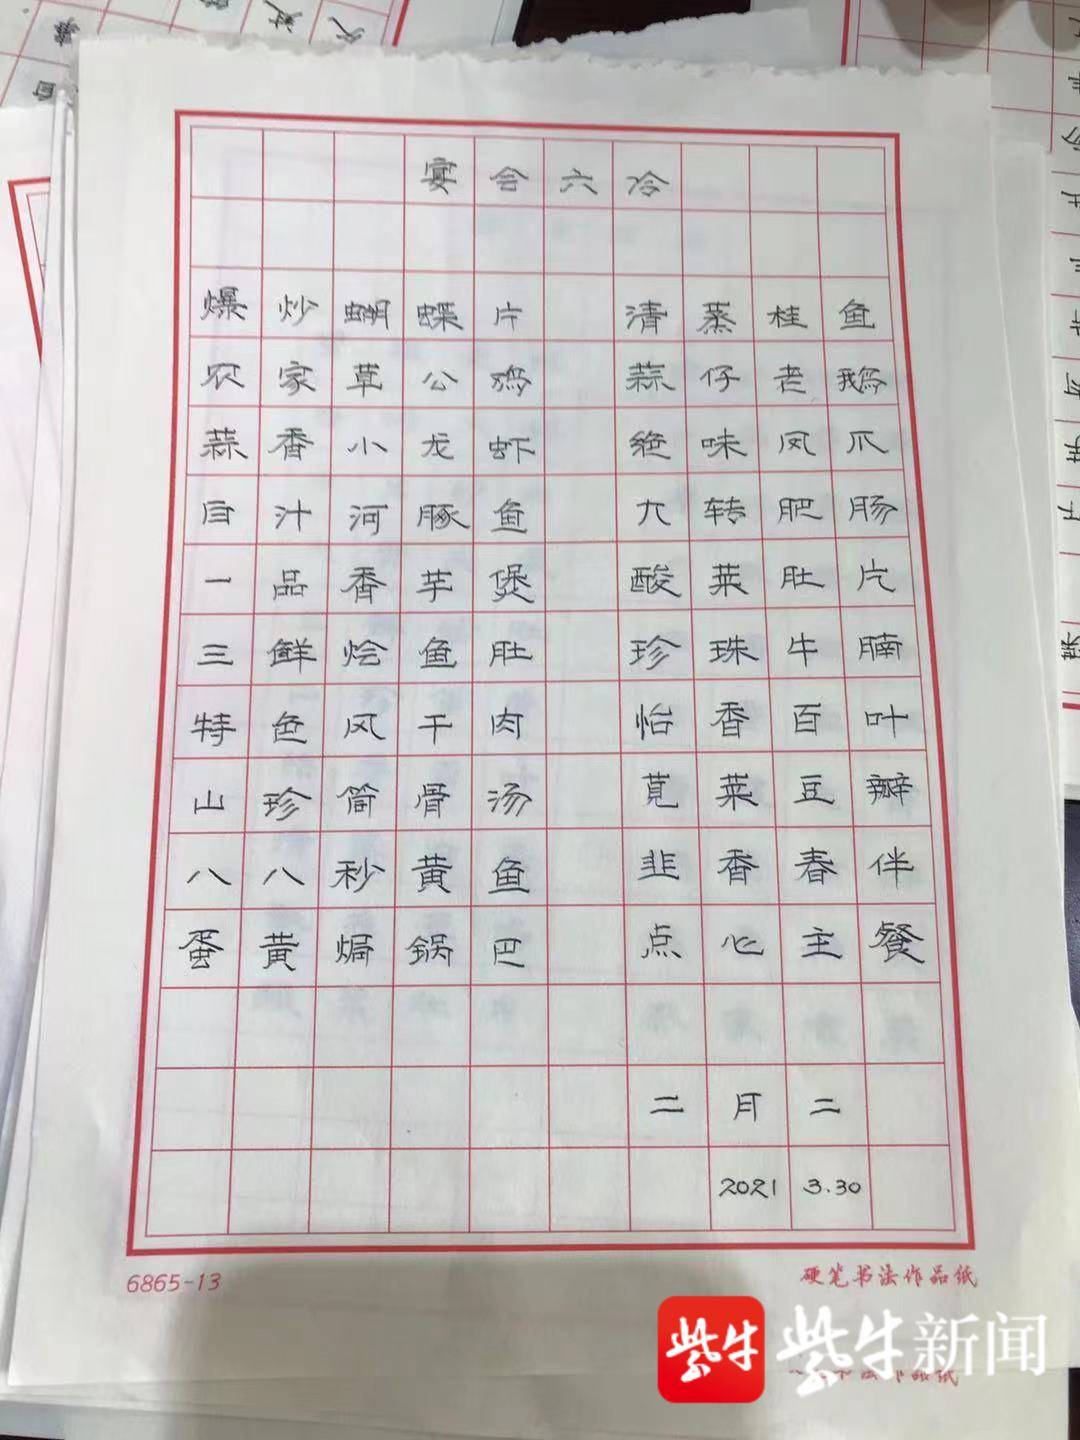 宴会六冷
爆炒蝴蝶片 清蒸桂鱼
农家草公鸡 蒜仔老鹅
蒜香小龙虾 绝味凤爪
白汁河豚鱼 九转肥肠
一品香芋煲 酸菜肚片
三鲜烩鱼肚 珍珠牛腩
特色风干肉 怡香百叶
山珍筒骨汤 苋菜豆瓣
八八秒黄鱼 韭香春伴
蛋黄焗锅巴 点心主餐
二月二
2021 3.30
6865-13 硬笔书法作品纸
紫牛 紫牛新闻